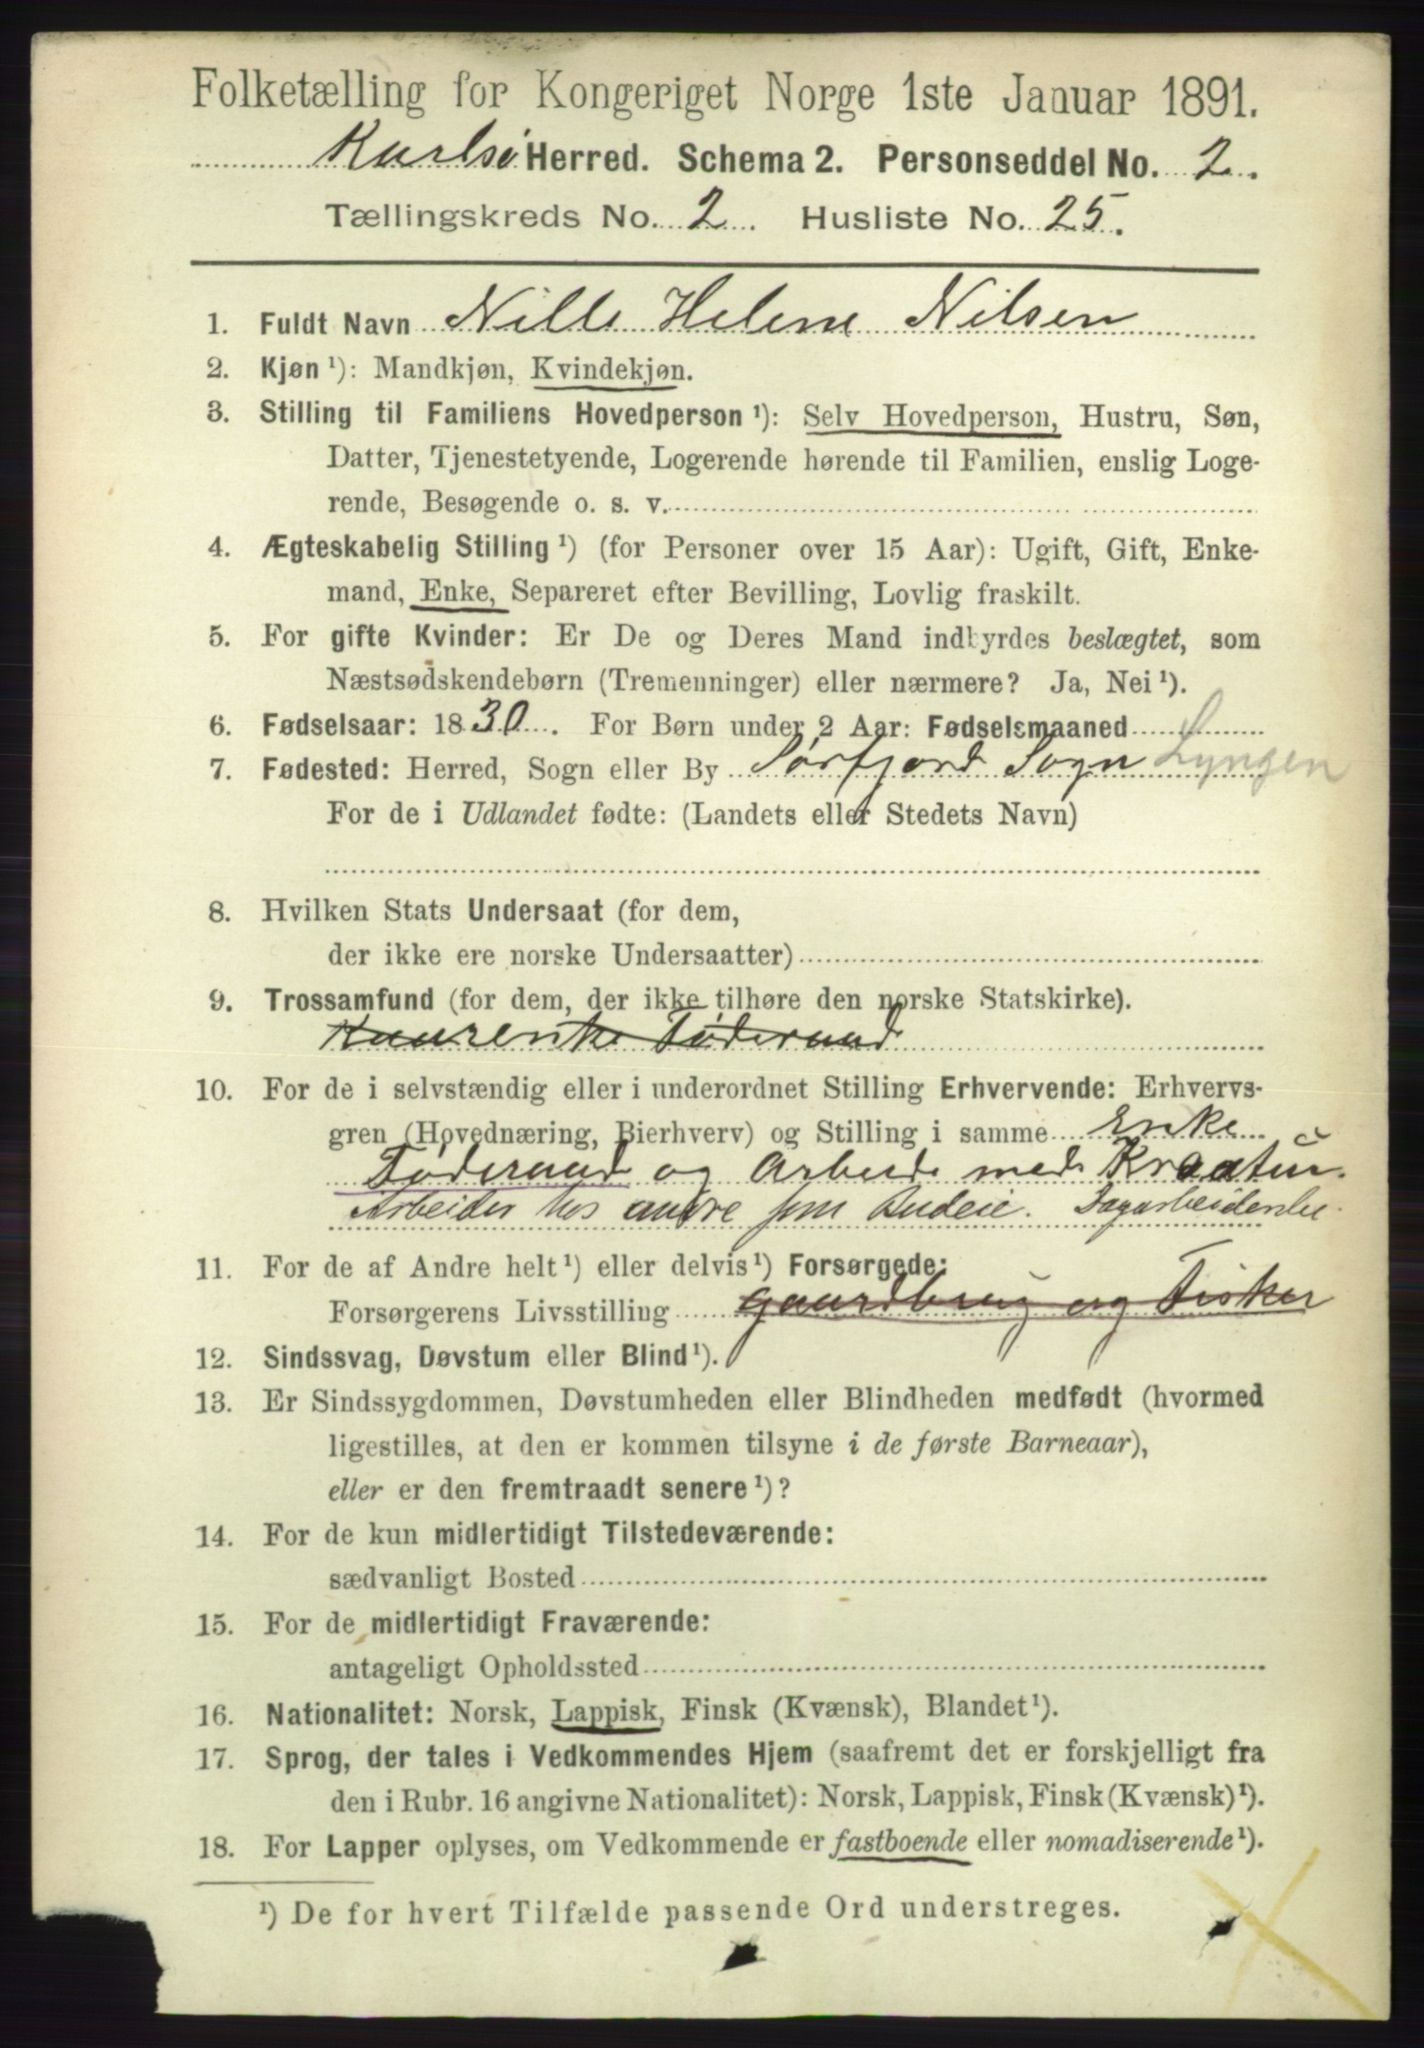 Folketælling for Kongeriget Norge 1ste Januar 1891.
Karlsø Herred. Schema 2. Personseddel No. 2.
Tællingskreds No. 2. Husliste No. 25.
1. Fuldt Navn Nille Helene Nilsen
2. Kjøn ¹): Mandkjøn, Kvindekjøn.
3. Stilling til Familiens Hovedperson ¹): Selv Hovedperson, Hustru, Søn,
Datter, Tjenestetyende, Logerende hørende til Familien, enslig Loge-
rende, Besøgende o. s. v.
4. Ægteskabelig Stilling ¹) (for Personer over 15 Aar): Ugift, Gift, Enke-
mand, Enke, Separeret efter Bevilling, Lovlig fraskilt.
5. For gifte Kvinder: Er De og Deres Mand indbyrdes beslægtet, som
Næstsødskendebørn (Tremenninger) eller nærmere? Ja, Nei ¹).
6. Fødselsaar: 1830. For Børn under 2 Aar: Fødselsmaaned
7. Fødested: Herred, Sogn eller By Sørfjord Sogn Lyngen
For de i Udlandet fødte: (Landets eller Stedets Navn)
8. Hvilken Stats Undersaat (for dem,
der ikke ere norske Undersaatter)
9. Trossamfund (for dem, der ikke tilhøre den norske Statskirke).
Føderaad
10. For de i selvstændig eller i underordnet Stilling Erhvervende: Erhvervs-
gren (Hovednæring, Bierhverv) og Stilling i samme Enke
Føderaad og Arbeide med Kreatur.
Arbeider hos andre som Budeie. Dagarbeiderske.
11. For de af Andre helt ¹) eller delvis ¹) Forsørgede:
Forsørgerens Livsstilling gaardbrug og Fisker
12. Sindssvag, Døvstum eller Blind ¹).
13. Er Sindssygdommen, Døvstumheden eller Blindheden medfødt (hvormed
ligestilles, at den er kommen tilsyne i de første Barneaar),
eller er den fremtraadt senere ¹)?
14. For de kun midlertidigt Tilstedeværende:
sædvanligt Bosted
15. For de midlertidigt Fraværende:
antageligt Opholdssted
16. Nationalitet: Norsk, Lappisk, Finsk (Kvænsk), Blandet ¹).
17. Sprog, der tales i Vedkommendes Hjem (saafremt det er forskjelligt fra
den i Rubr. 16 angivne Nationalitet): Norsk, Lappisk, Finsk (Kvænsk) ¹).
18. For Lapper oplyses, om Vedkommende er fastboende eller nomadiserende ¹).
¹) De for hvert Tilfælde passende Ord understreges.